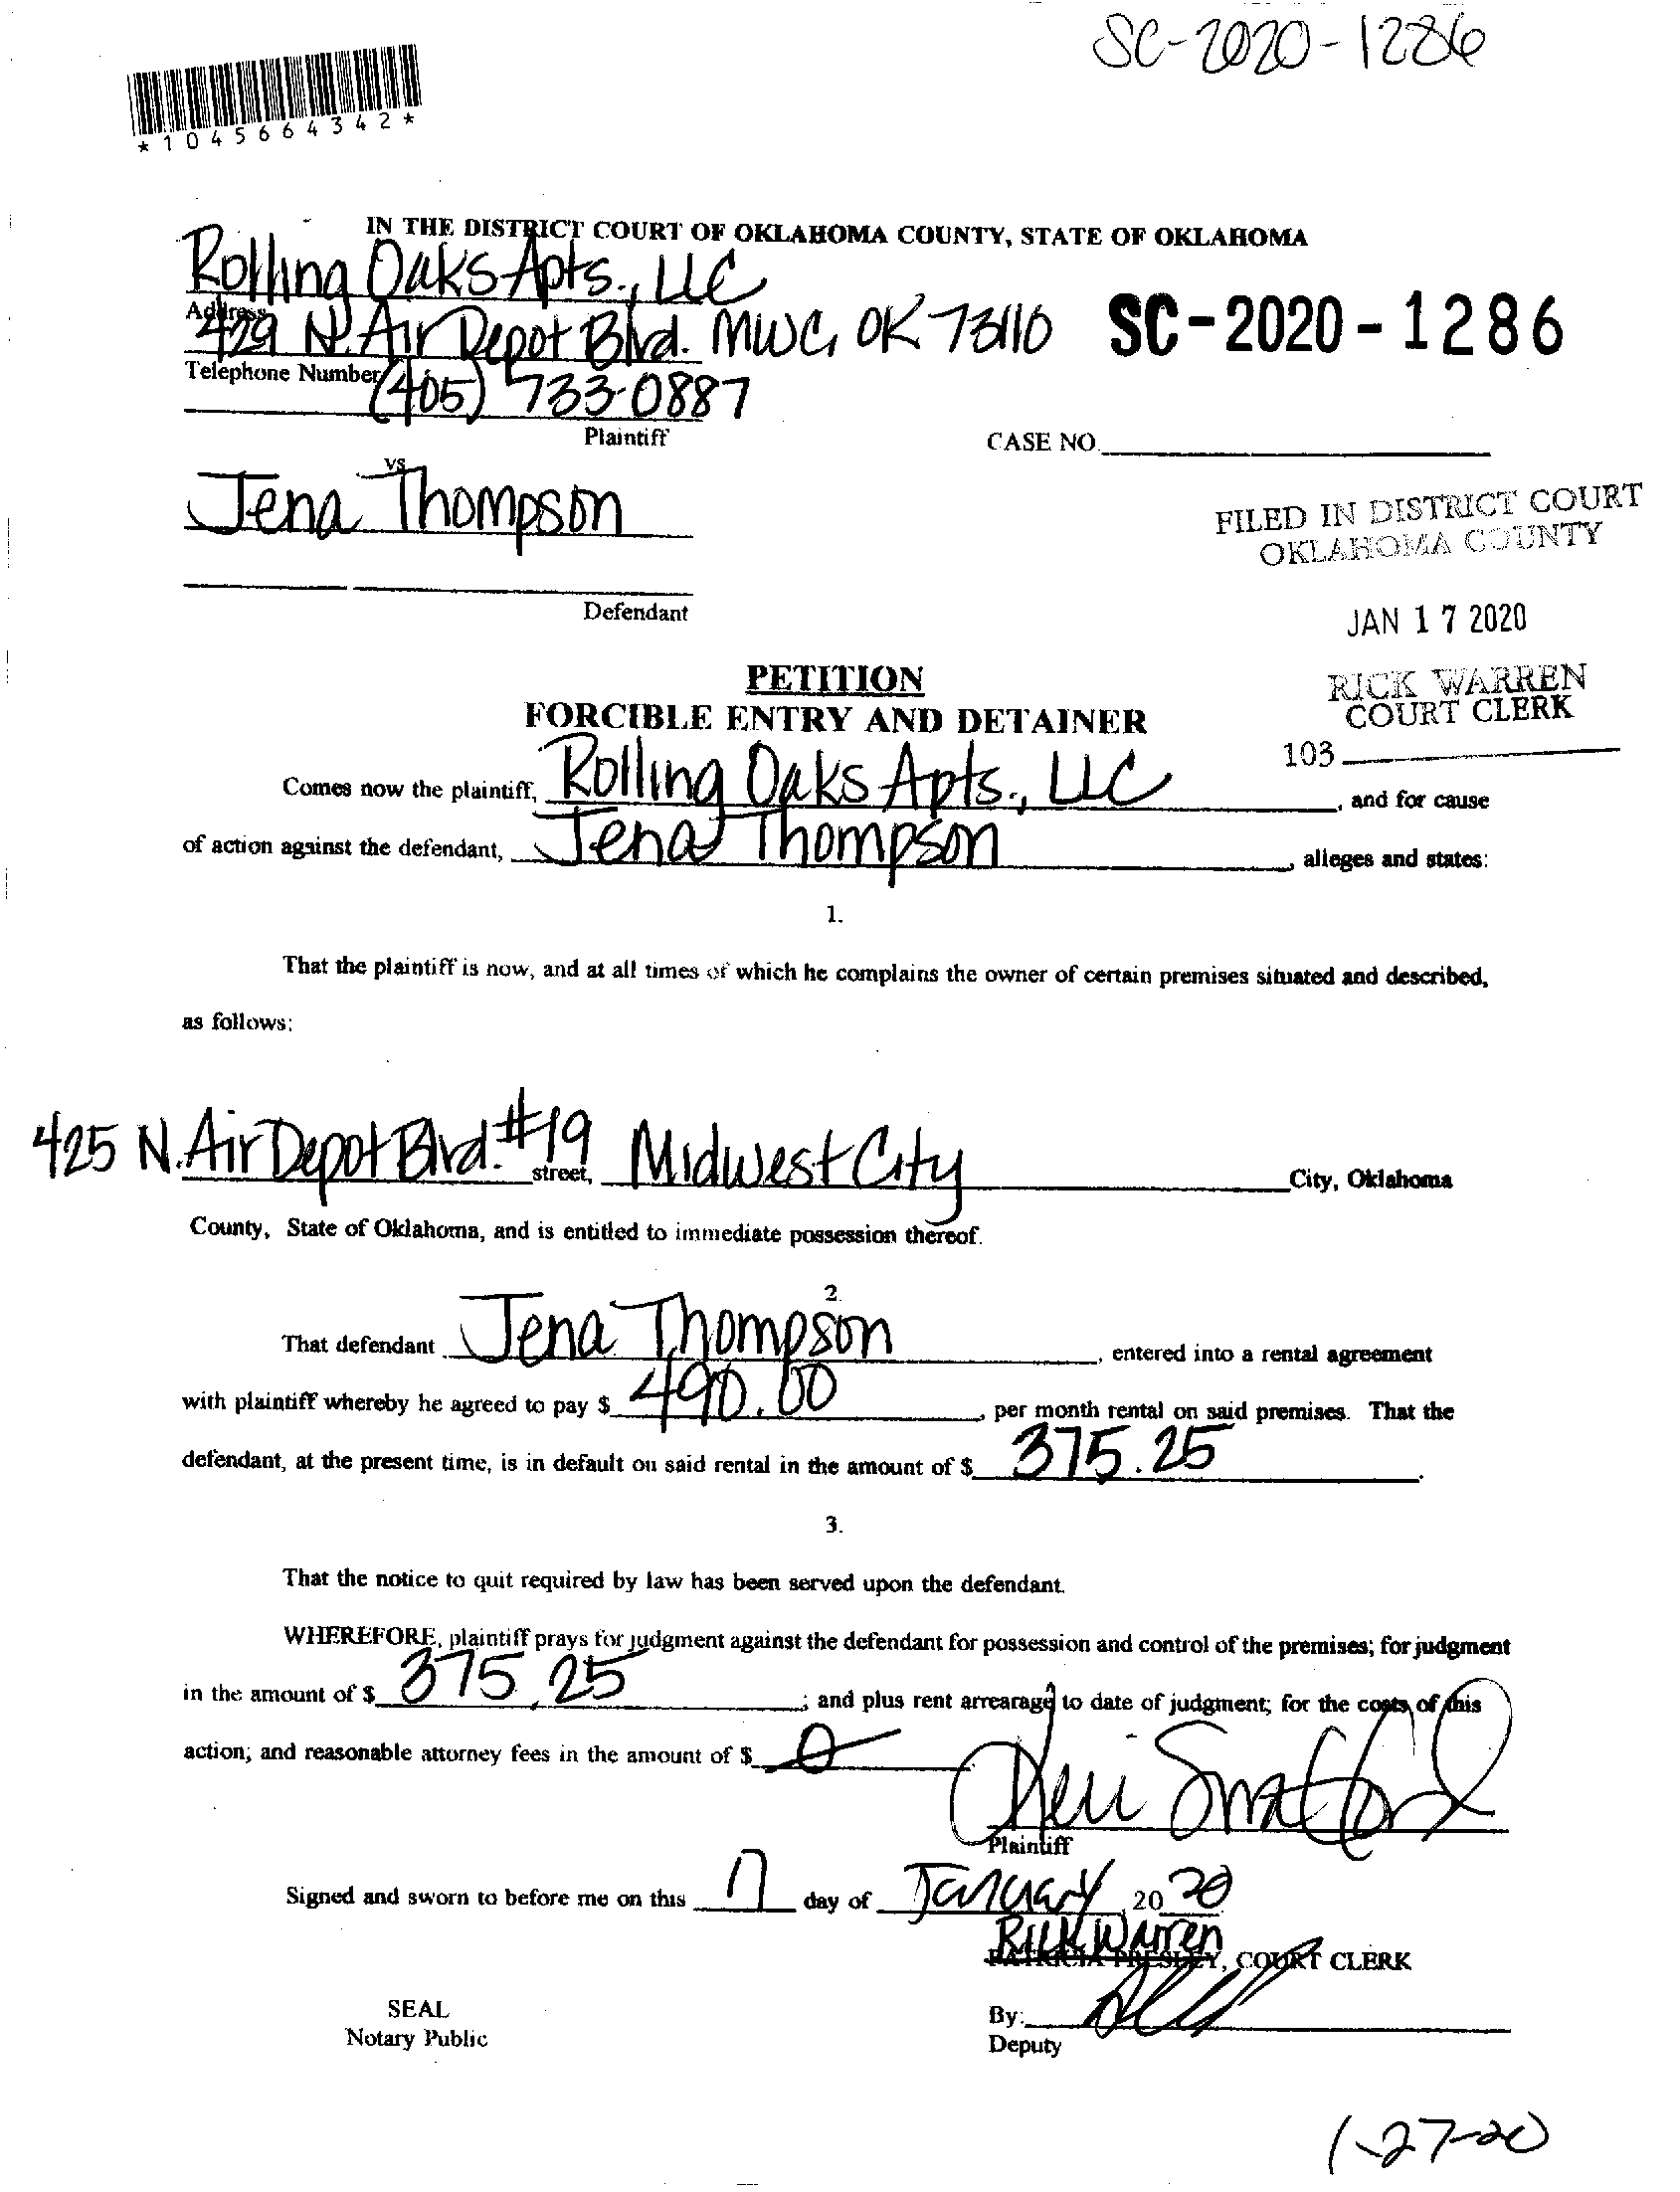 SC-2020-1286
*1045664342*
IN THE DISTRICT COURT OF OKLAHOMA COUNTY, STATE OF OKLAHOMA
Rolling Oaks Apts., LLC
Address
429 N. Air Depot Blvd. MWC, OK 73110
SC-2020-1286
Telephone Number (405) 733-0887
Plaintiff
CASE NO.
vs
Jena Thompson
FILED IN DISTRICT COURT
OKLAHOMA COUNTY
Defendant
JAN 17 2020
PETITION
FORCIBLE ENTRY AND DETAINER
RICK WARREN
COURT CLERK
103
Comes now the plaintiff, Rolling Oaks Apts., LLC, and for cause
of action against the defendant, Jena Thompson, alleges and states:
1.
That the plaintiff is now, and at all times of which he complains the owner of certain premises situated and described,
as follows:
425 N. Air Depot Blvd. #19 street, Midwest City City, Oklahoma
County, State of Oklahoma, and is entitled to immediate possession thereof.
2.
That defendant Jena Thompson, entered into a rental agreement
with plaintiff whereby he agreed to pay $ 490.00, per month rental on said premises. That the
defendant, at the present time, is in default on said rental in the amount of $ 375.25.
3.
That the notice to quit required by law has been served upon the defendant.
WHEREFORE, plaintiff prays for judgment against the defendant for possession and control of the premises; for judgment
in the amount of $ 375.25; and plus rent arrearage to date of judgment; for the costs of this
action; and reasonable attorney fees in the amount of $ 0
Plaintiff
Signed and sworn to before me on this 17 day of January, 2020
Rick Warren
PATRICIA PRESLEY, COURT CLERK
SEAL
Notary Public
By:
Deputy
1-27-20